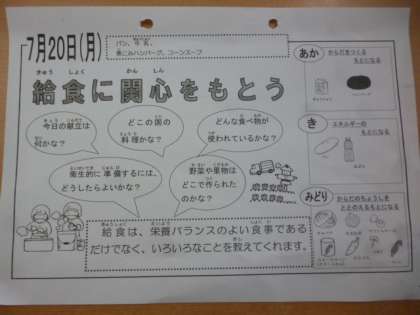 7月20日(月)
パン、牛乳、
煮こみハンバーグ、コーンスープ
給食に関心をもとう
きゅう しょく かん しん
今日の献立は
何かな？
どこの国の
料理かな？
どんな食べ物が
使われているかな？
衛生的に準備するには、
どうしたらよいかな？
野菜や果物は
どこで作られた
のかな？
給食は、栄養バランスのよい食事である
だけでなく、いろいろなことを教えてくれます。
あか
からだをつくる
もとになる
き
エネルギーの
もとになる
みどり
からだのちょうしを
ととのえるもとになる